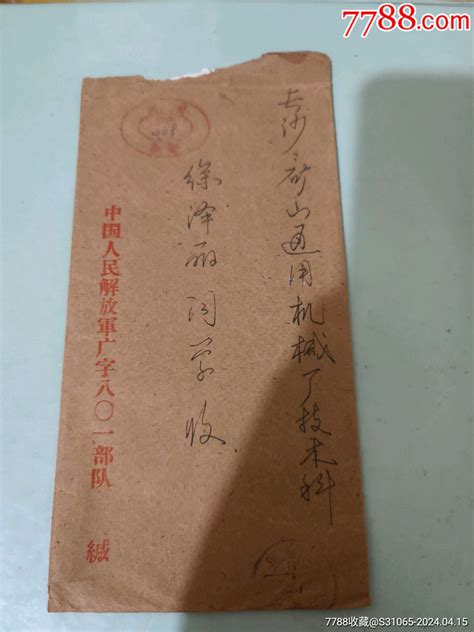 7788.com
长沙：矿山通用机械厂技术科
徐泽丽同学收
中国人民解放軍广字八〇一部队 緘
7788收藏@S31065-2024.04.15